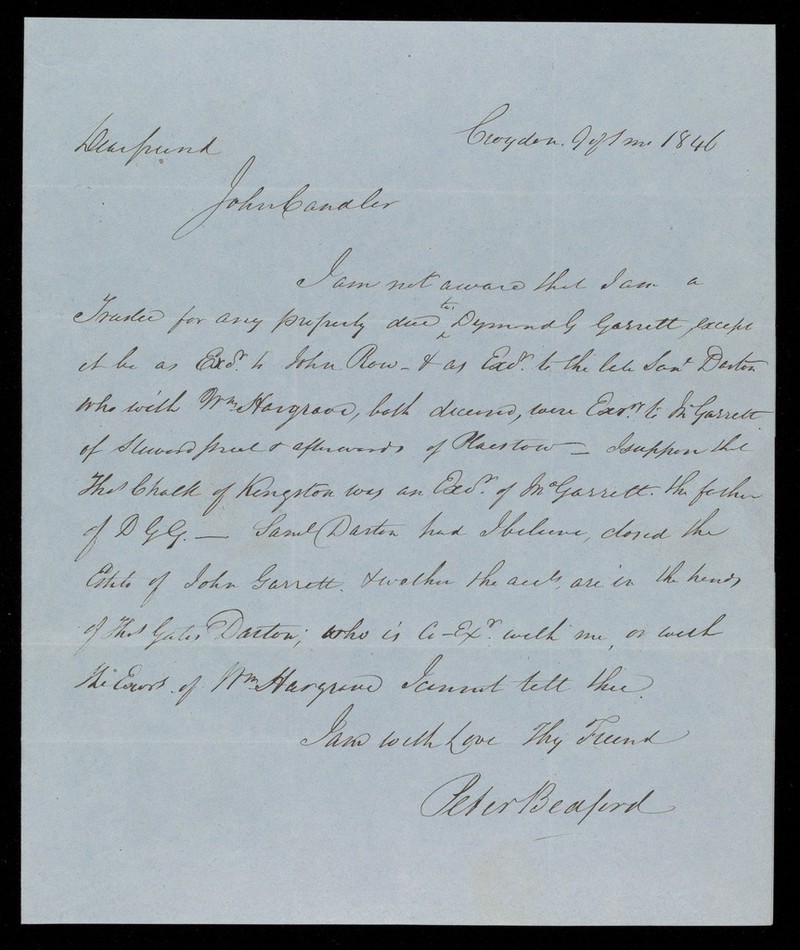 Croydon. 9 of 1 mo 1846
Dear friend
John Candler
I am not aware that I am a
Trustee for any property due to Dymond G Garrett, except
it be as Exor. to John Row - & as Exor. to the late Saml Darton
who with Wm Hargrave, both deceased, were Exors to Jn Garrett
of Steward Street & afterwards of Plaistow - I suppose that
Thos Chalk of Kingston was an Exor. of Garrett. the father
of D G G. — Saml Darton had I believe, closed the
Estate of John Garrett. & wether the accts, are in the hands
of Thos Gates Darton; who is Co-Exr. with me, or with
the Exors. of Wm Hargrave I cannot tell thee.
I am with Love Thy Friend
Peter Bedford